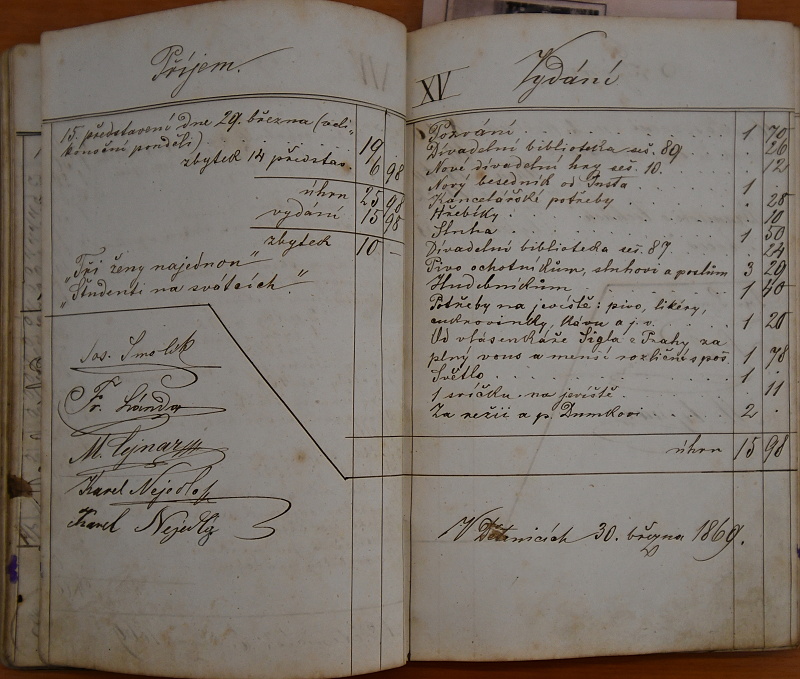 Příjem.
15. představení dne 29. března (veli-
konoční pondělí) . . . 19 .
zbytek 14 představ. 6 98
úhrn 25 98
vydání 15 98
zbytek 10 —
„Tři ženy najednou“
„Studenti na svátcích.“
Jos. Smolík
Fr. Lánda
M. Cejnar
Karel Nejedlý
Karel Nejedlý
XV Vydání
Pozvání . . . 1 70
Divadelní biblioteka seš. 89 . 26
Nové divadelní hry seš. 10. . 12
Nový besedník od 1 .
Kancelářské potřeby . 28
Hřebíky . 10
Stuha 1 50
Divadelní biblioteka seš. 87. . 24
Pivo ochotníkům, sluhovi a poslům 3 29
Hudebníkům 1 40
Potřeby na jeviště: pivo, likéry,
cukrovinky, kávu a j. v. 1 20
Od vlásenkáře Šigla z Prahy za
plný vous a menší rozliční 1 78
Světlo 1 .
1 svíčku na jeviště . 11
Za režii a p. Dumkovi 2 .
úhrn 15 98
V Dětenicích 30. března 1869.